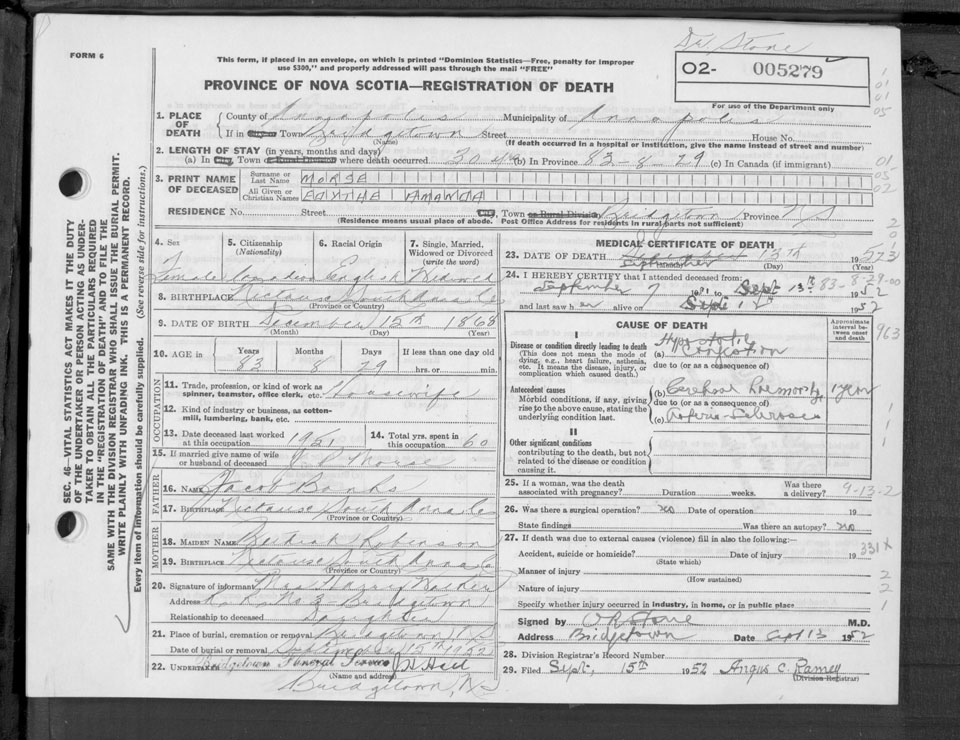 Dr Stone
FORM 6
This form, if placed in an envelope, on which is printed "Dominion Statistics—Free, penalty for improper
use $300," and properly addressed will pass through the mail "FREE"
O2- 005279
PROVINCE OF NOVA SCOTIA—REGISTRATION OF DEATH
For use of the Department only
1. PLACE OF DEATH
County of Annapolis Municipality of Annapolis
If in City Town Bridgetown Street House No.
(Name) (If death occurred in a hospital or institution, give the name instead of street and number)
2. LENGTH OF STAY (in years, months and days)
(a) In City, Town or Rural Division where death occurred 30 yrs (b) In Province 83-8-29 (c) In Canada (if immigrant)
3. PRINT NAME OF DECEASED
Surname or Last Name MORSE
All Given or Christian Names AMANDA
RESIDENCE No. Street City, Town or Rural Division Bridgetown Province NS
(Residence means usual place of abode. Post Office Address for residents in rural parts not sufficient)
4. Sex 5. Citizenship (Nationality) 6. Racial Origin 7. Single, Married, Widowed or Divorced (write the word)
Female Canadian English Widowed
8. BIRTHPLACE Nictaux South Anna Co
9. DATE OF BIRTH December 15th 1868
(Month) (Day) (Year)
10. AGE in Years Months Days If less than one day old
83 8 29 hrs. or min.
OCCUPATION
11. Trade, profession, or kind of work as spinner, teamster, office clerk, etc. Housewife
12. Kind of industry or business, as cotton-mill, lumbering, bank, etc.
13. Date deceased last worked at this occupation 1951 14. Total yrs. spent in this occupation 60
15. If married give name of wife or husband of deceased Morse
FATHER
16. NAME Jacob Banks
17. BIRTHPLACE Nictaux South Anna Co
(Province or Country)
MOTHER
18. MAIDEN NAME Robinson
19. BIRTHPLACE Nictaux South Anna Co
(Province or Country)
20. Signature of informant Mrs Harry
Address R. R. No 3 Bridgetown
Relationship to deceased Daughter
21. Place of burial, cremation or removal Bridgetown N S
Date of burial or removal September 15th 1952
22. UNDERTAKER Bridgetown Funeral Service
(Name and address)
Bridgetown, NS
MEDICAL CERTIFICATE OF DEATH
23. DATE OF DEATH September 13th 1952
(Month) (Day) (Year)
24. I HEREBY CERTIFY that I attended deceased from:
September 7 to Sept 13th 1952
and last saw her alive on Sept 1952
83-8-29-00
CAUSE OF DEATH
Approximate interval between onset and death
963
I
Disease or condition directly leading to death
(This does not mean the mode of dying, e.g., heart failure, asthenia, etc. It means the disease, injury, or complication which caused death.)
(a) Hypostatic Congestion
due to (or as a consequence of)
Antecedent causes
Morbid conditions, if any, giving rise to the above cause, stating the underlying condition last.
(b) Cerebral Hemorrhage 1 year
due to (or as a consequence of)
(c) Arterio-Sclerosis
II
Other significant conditions
contributing to the death, but not related to the disease or condition causing it.
25. If a woman, was the death associated with pregnancy? Duration weeks. Was there a delivery?
9-13-2
26. Was there a surgical operation? no Date of operation 19
State findings Was there an autopsy? no
27. If death was due to external causes (violence) fill in also the following:—
331x
Accident, suicide or homicide? Date of injury 19
(State which)
Manner of injury
(How sustained)
Nature of injury
Specify whether injury occurred in industry, in home, or in public place
Signed by Stone M.D.
Address Bridgetown Date Sept 13 1952
28. Division Registrar's Record Number
29. Filed Sept. 15th 1952 Angus C. Ramey
(Division Registrar)
SEC. 46—VITAL STATISTICS ACT MAKES IT THE DUTY
OF THE UNDERTAKER OR PERSON ACTING AS UNDER-
TAKER TO OBTAIN ALL THE PARTICULARS REQUIRED
IN THE "REGISTRATION OF DEATH" AND TO FILE THE
SAME WITH THE DIVISION REGISTRAR WHO SHALL ISSUE THE BURIAL PERMIT.
WRITE PLAINLY WITH UNFADING INK. THIS IS A PERMANENT RECORD.
Every item of information should be carefully supplied. (See reverse side for instructions.)